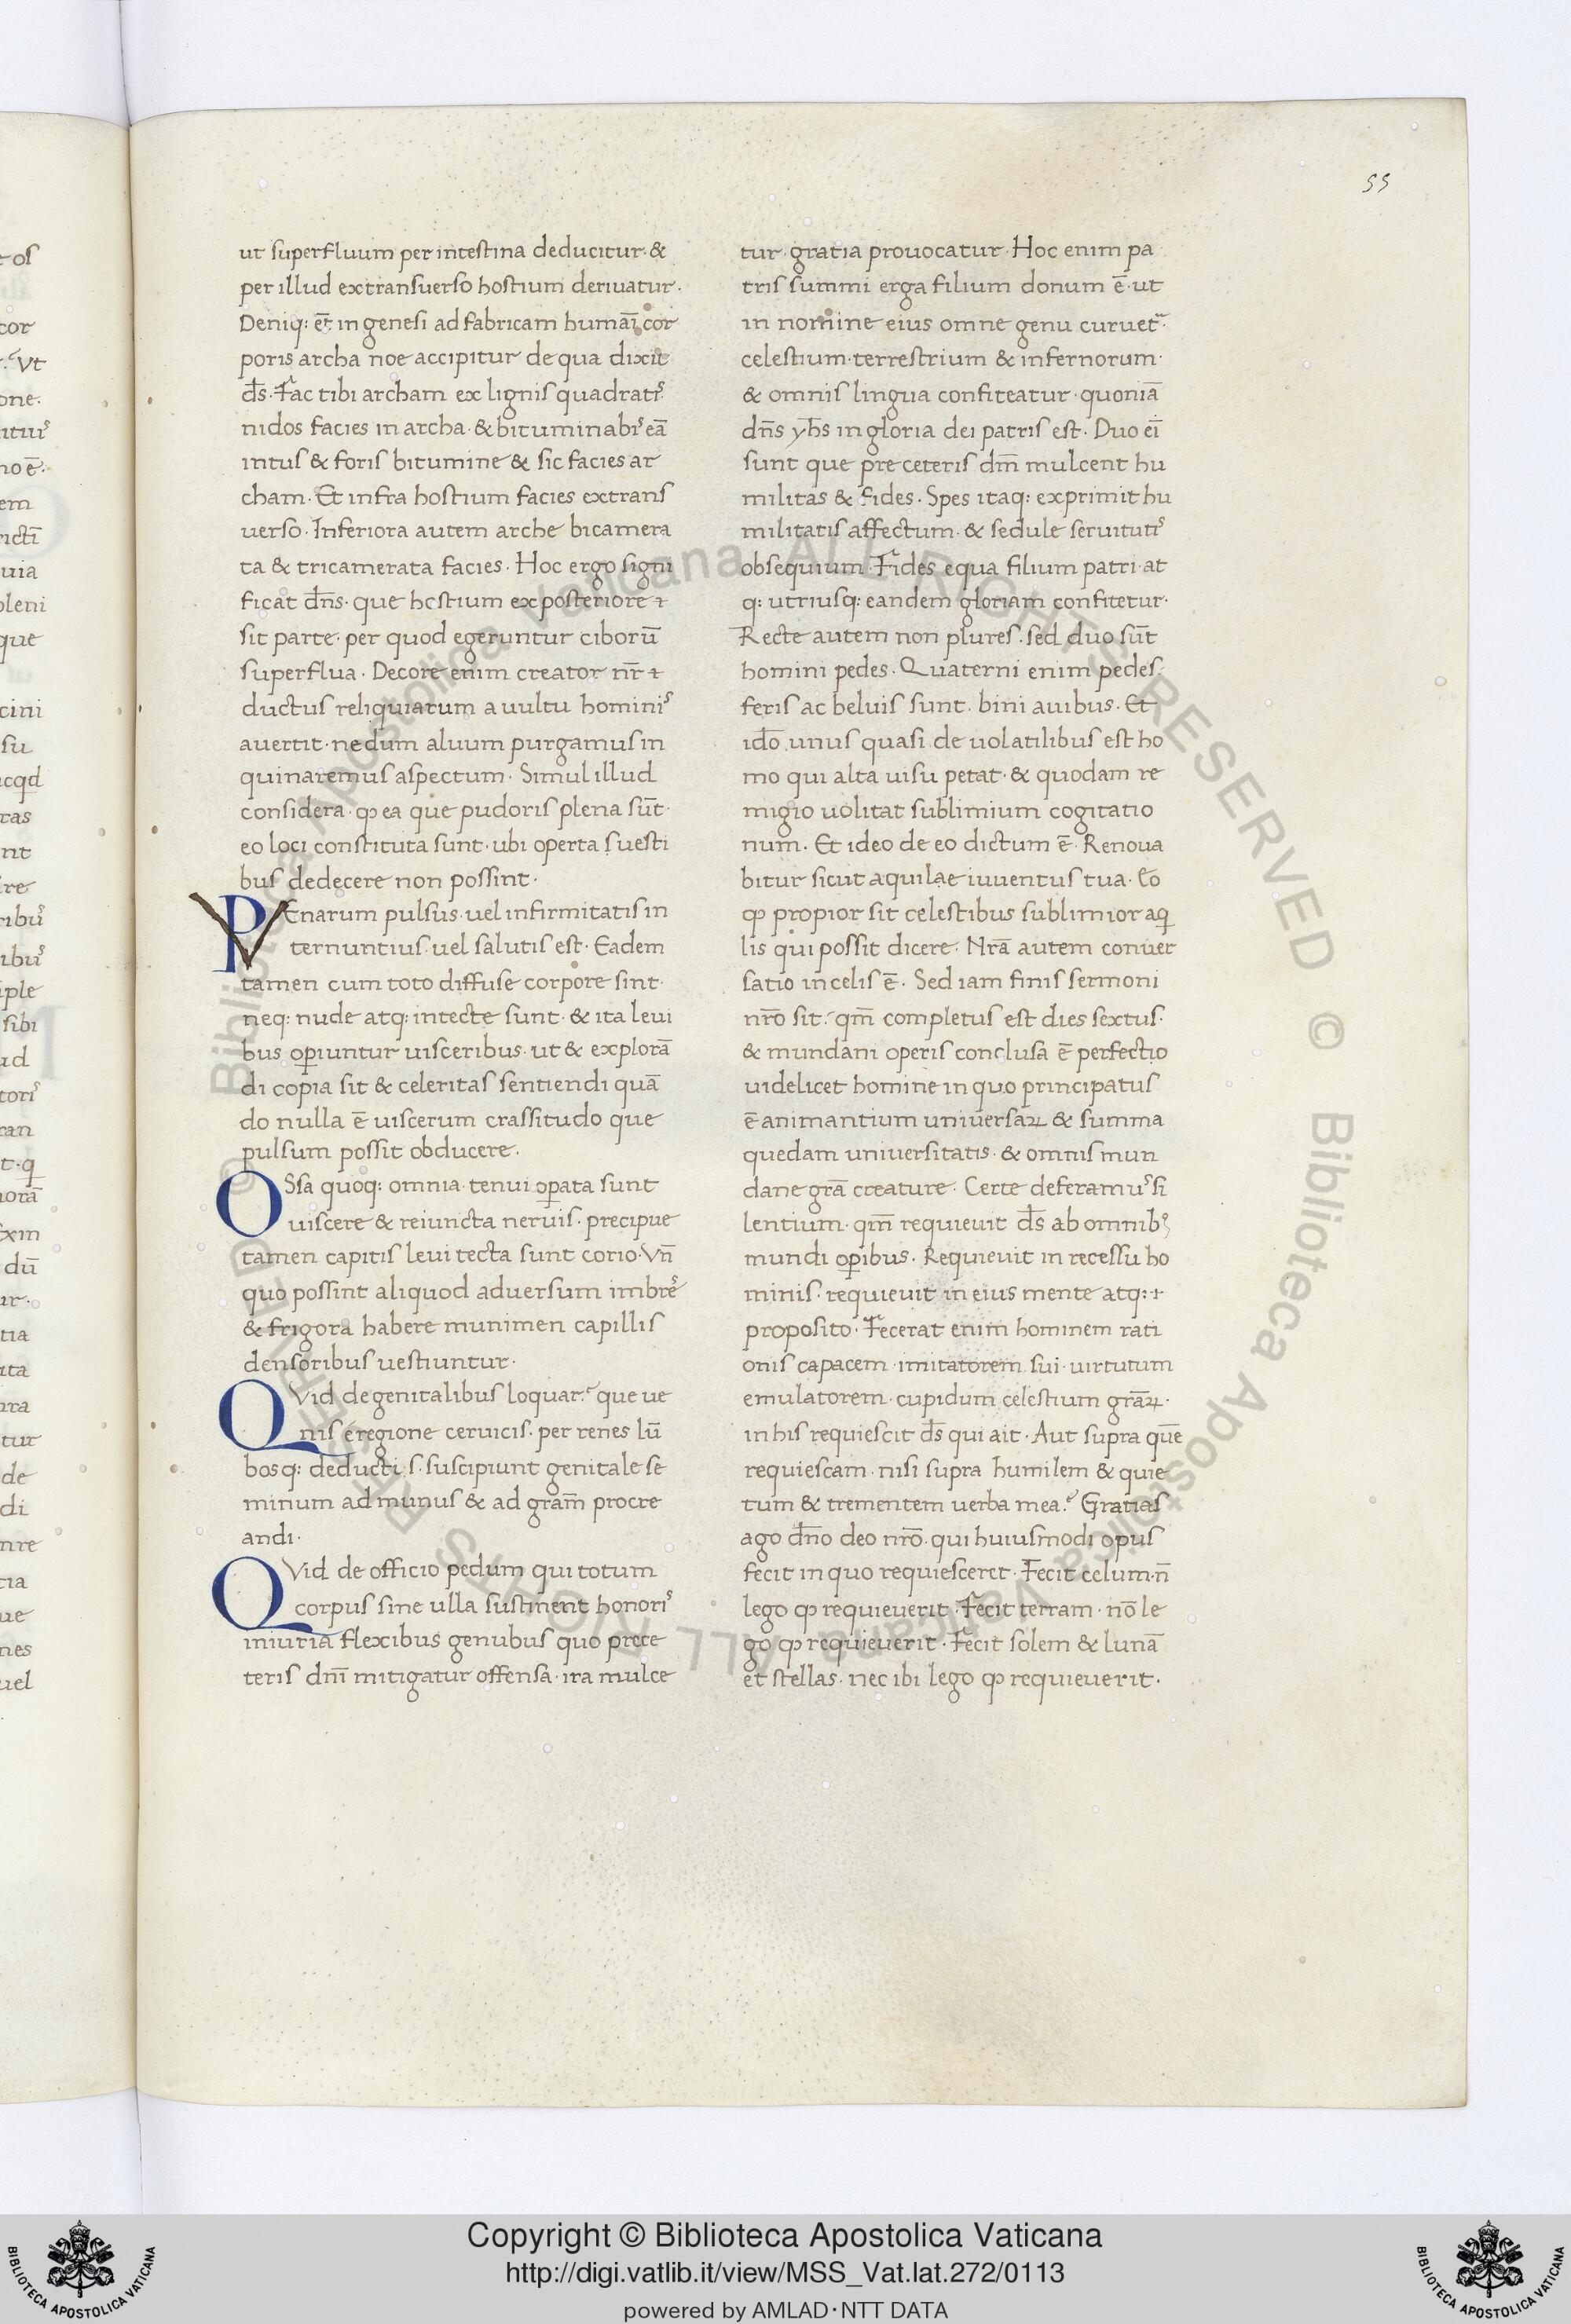 55
ut superfluum per intestina deducitur· &
per illud extransuerso hostium deriuatur·
Deniq: et̄ in genesi ad fabricam humaī cor
poris archa noe accipitur de qua dixit
d̄s· Fac tibi archam ex lignis quadratis
nidos facies in archa· & bituminabis eā
intus & foris bitumine & sic facies ar
cham· Et infra hostium facies extrans
uerso· Inferiora autem arche bicamera
ta & tricamerata facies· Hoc ergo signi
ficat d̄ns· que hostium ex posteriore
sit parte· per quod egeruntur ciborū
superflua· Decore enim creator nr̄
ductus reliquiarum a uultu hominis
auertit· ne dum aluum purgamus in
quinaremus aspectum· Simul illud
considera· ꝙ ea que pudoris plena sūt·
eo loci constituta sunt· ubi operta suesti
bus dedecere non possint·
VEnarum pulsus· uel infirmitatis in
ternuntius· uel salutis est· Eadem
tamen cum toto diffuse corpore sint·
neq: nude atq: intecte sunt· & ita leui
bus oꝑiuntur uisceribus· ut & explorā
di copia sit & celeritas sentiendi quā
do nulla ē uiscerum crassitudo que
pulsum possit obducere·
OSsa quoq: omnia tenui oꝑata sunt
uiscere & reiuncta neruis· precipue
tamen capitis leui tecta sunt corio· Vn̄
quo possint aliquod aduersum imbres
& frigora habere munimen capillis
densoribus uestiuntur·
QVid de genitalibus loquar? que ue
nis é regione ceruicis· per renes lū
bosq: deducti s· suscipiunt genitale se
minum ad munus & ad gram̄ procre
andi·
QVid de officio pedum qui totum
corpus sine ulla sustinent honoris
iniuria flexibus genubus quo prece
teris dn̄i mitigatur offensa· ira mulce
tur· gratia prouocatur· Hoc enim pa
tris summi erga filium donum ē· ut
in nomine eius omne genu curuetr·
celestium· terrestrium & infernorum·
& omnis lingua confiteatur· quoniā
dn̄s yh̄s in gloria dei patris est· Duo eī
sunt que pre ceteris dm̄ mulcent hu
militas & fides· Spes itaq: exprimit hu
militatis affectum· & sedule seruitutis
obsequium· Fides equa filium patri· at
q: utriusq: eandem gloriam confitetur·
Recte autem non plures· sed duo sūt
homini pedes· Quaterni enim pedes·
feris ac beluis sunt· bini auibus· Et
id̄o unus quasi de uolatilibus est ho
mo qui alta uisu petat· & quodam re
migio uolitat sublimium cogitatio
num· Et ideo de eo dictum ē· Renoua
bitur sicut aquilae iuuentus tua· Eo
ꝙ propior sit celestibus sublimior aq̄
lis qui possit dicere· Nrā autem conuer
satio in celis ē· Sed iam finis sermoni
nrō sit· qm̄ completus est dies sextus·
& mundani operis conclusa ē perfectio
uidelicet homine in quo principatus
ē animantium uniuersaꝝ & summa
quedam uniuersitatis· & omnis mun
dane grā creature· Certe deferamus si
lentium· qm̄ requieuit d̄s ab omnibꝰ
mundi oꝑibus· Requieuit in recessu ho
minis· requieuit in eius mente atq:
proposito· Fecerat enim hominem rati
onis capacem· imitatorem sui· uirtutum
emulatorem· cupidum celestium grāꝝ·
in his requiescit d̄s qui ait· Aut supra quē
requiescam· nisi supra humilem & quie
tum & trementem uerba mea? Gratias
ago d̄no deo nrō· qui huiusmodi opus
fecit in quo requiesceret· Fecit celum· n̄
lego ꝙ requieuerit· Fecit terram· nō le
go ꝙ requieuerit· Fecit solem & lunā
et stellas· nec ibi lego ꝙ requieuerit·
Copyright © Biblioteca Apostolica Vaticana
http://digi.vatlib.it/view/MSS_Vat.lat.272/0113
powered by AMLAD·NTT DATA